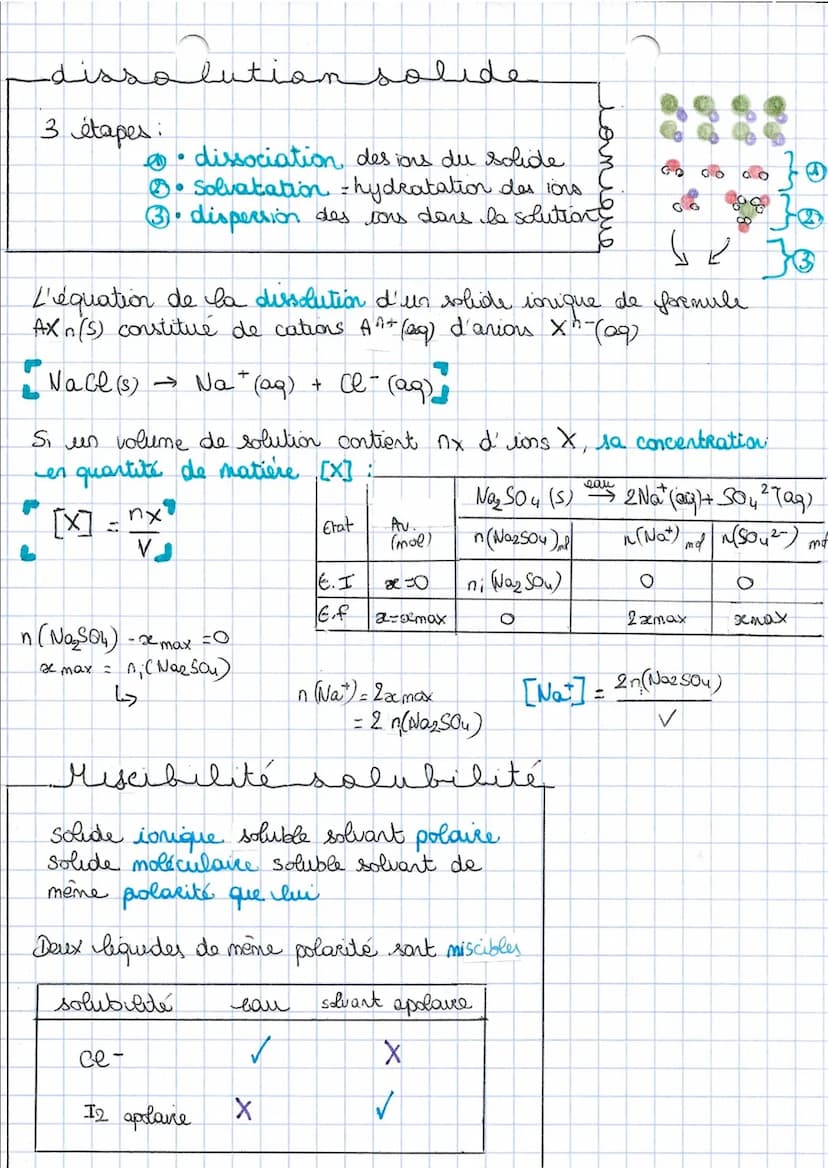 dissolution solide
3 étapes :
① • dissociation des ions du solide
② • Solvatation = hydratation des ions
③ • dispersion des ions dans la solution
①
②
③
L'équation de la dissolution d'un solide ionique de formule
AXn(s) constitué de cations Aⁿ⁺(aq) d'anions Xⁿ⁻(aq)
[NaCl(s) → Na⁺(aq) + Cl⁻(aq)]
Si un volume de solution contient nx d'ions X, sa concentration
en quantité de matière [X] :
[X] = nx / V
Na₂SO₄(s) eau→ 2Na⁺(aq) + SO₄²⁻(aq)
Etat Av. (mol) n(Na2SO4) n(Na⁺) md n(SO4²⁻) md
E.I x=0 ni(Na2SO4) 0 0
E.f x=xmax 0 2xmax xmax
n(Na₂SO4) - xmax = 0
xmax = ni(Na2SO4)
↳
n(Na⁺) = 2xmax
= 2 n(Na2SO4)
[Na⁺] = 2n(Na2SO4) / V
Miscibilité solubilité
solide ionique soluble solvant polaire
solide moléculaire soluble solvant de
même polarité que lui
Deux liquides de même polarité sont miscibles
solubilité eau solvant apolaire
Cl⁻ ✓ X
I2 apolaire X ✓